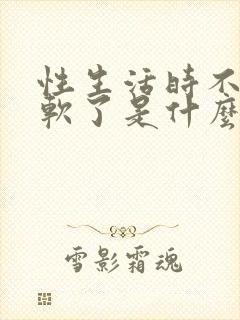 性生活時不
軟了是什麼
雪影霜魂